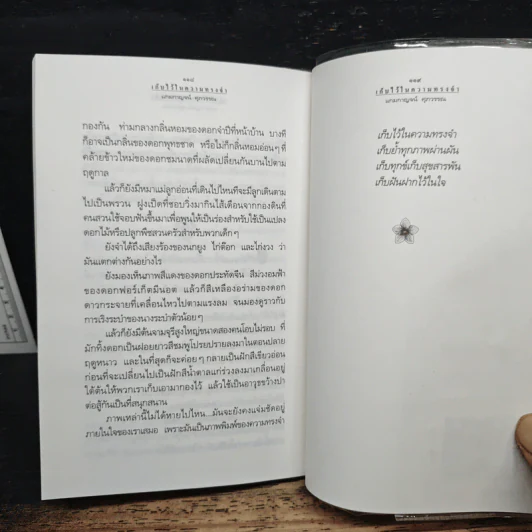 ๑๑๘
เก็บไว้ในความทรงจำ
นกมกาญจน์ ศุภวรรธนะ
กองกัน ท่ามกลางกลิ่นหอมของดอกจำปีที่หน้าบ้าน บางที
ก็อาจเป็นกลิ่นของดอกพุทธชาด หรือไม่ก็กลิ่นหอมอ่อนๆ ที่
คล้ายข้าวใหม่ของดอกชมนาดที่ผลัดเปลี่ยนกันบานไปตาม
ฤดูกาล
แล้วก็ยังมีหมาแม่ลูกอ่อนที่เดินไปไหนทีจะมีลูกเดินตาม
ไปเป็นพรวน ฝูงเป็ดที่ชอบวิ่งมากินไส้เดือนจากกองดินที่
คนสวนใช้จอบฟันขึ้นมาเพื่อพูนให้เป็นร่องสำหรับใช้เป็นแปลง
ดอกไม้หรือปลูกพืชสวนครัวสำหรับพวกเด็กๆ
ยังจำได้ถึงเสียงร้องของนกยูง ไก่ต๊อก และไก่งวง ว่า
มันแตกต่างกันอย่างไร
ยังมองเห็นภาพสีแดงของดอกประทัดจีน สีม่วงอมฟ้า
ของดอกฟอร์เก็ตมีนอต แล้วก็สีเหลืองอร่ามของดอก
ดาวกระจายที่เคลื่อนไหวไปตามแรงลม จนมองดูราวกับ
การเริงระบำของนางระบำตัวน้อยๆ
แล้วก็ยังมีต้นจามจุรีสูงใหญ่ขนาดสองคนโอบไม่รอบ ที่
มักทิ้งดอกเป็นฝอยยาวสีชมพูโปรยปรายลงมาในตอนปลาย
ฤดูหนาว และในที่สุดก็จะค่อยๆ กลายเป็นฝักสีเขียวอ่อน
ก่อนที่จะเปลี่ยนไปเป็นฝักสีน้ำตาลแก่ร่วงลงมาเกลื่อนอยู่
ใต้ต้นให้พวกเราเก็บเอามากองไว้ แล้วใช้เป็นอาวุธขว้างปา
ต่อสู้กันเป็นที่สนุกสนาน
ภาพเหล่านี้ไม่ได้หายไปไหน...มันจะยังคงแจ่มชัดอยู่
ภายในใจของเราเสมอ เพราะมันเป็นภาพพิมพ์ของความทรงจำ
๑๑๙
เก็บไว้ในความทรงจำ
เก็บไว้ในความทรงจำ
เก็บย้ำทุกภาพผ่านผัน
เก็บทุกข์เก็บสุขสารพัน
เก็บฝันฝากไว้ในใจ